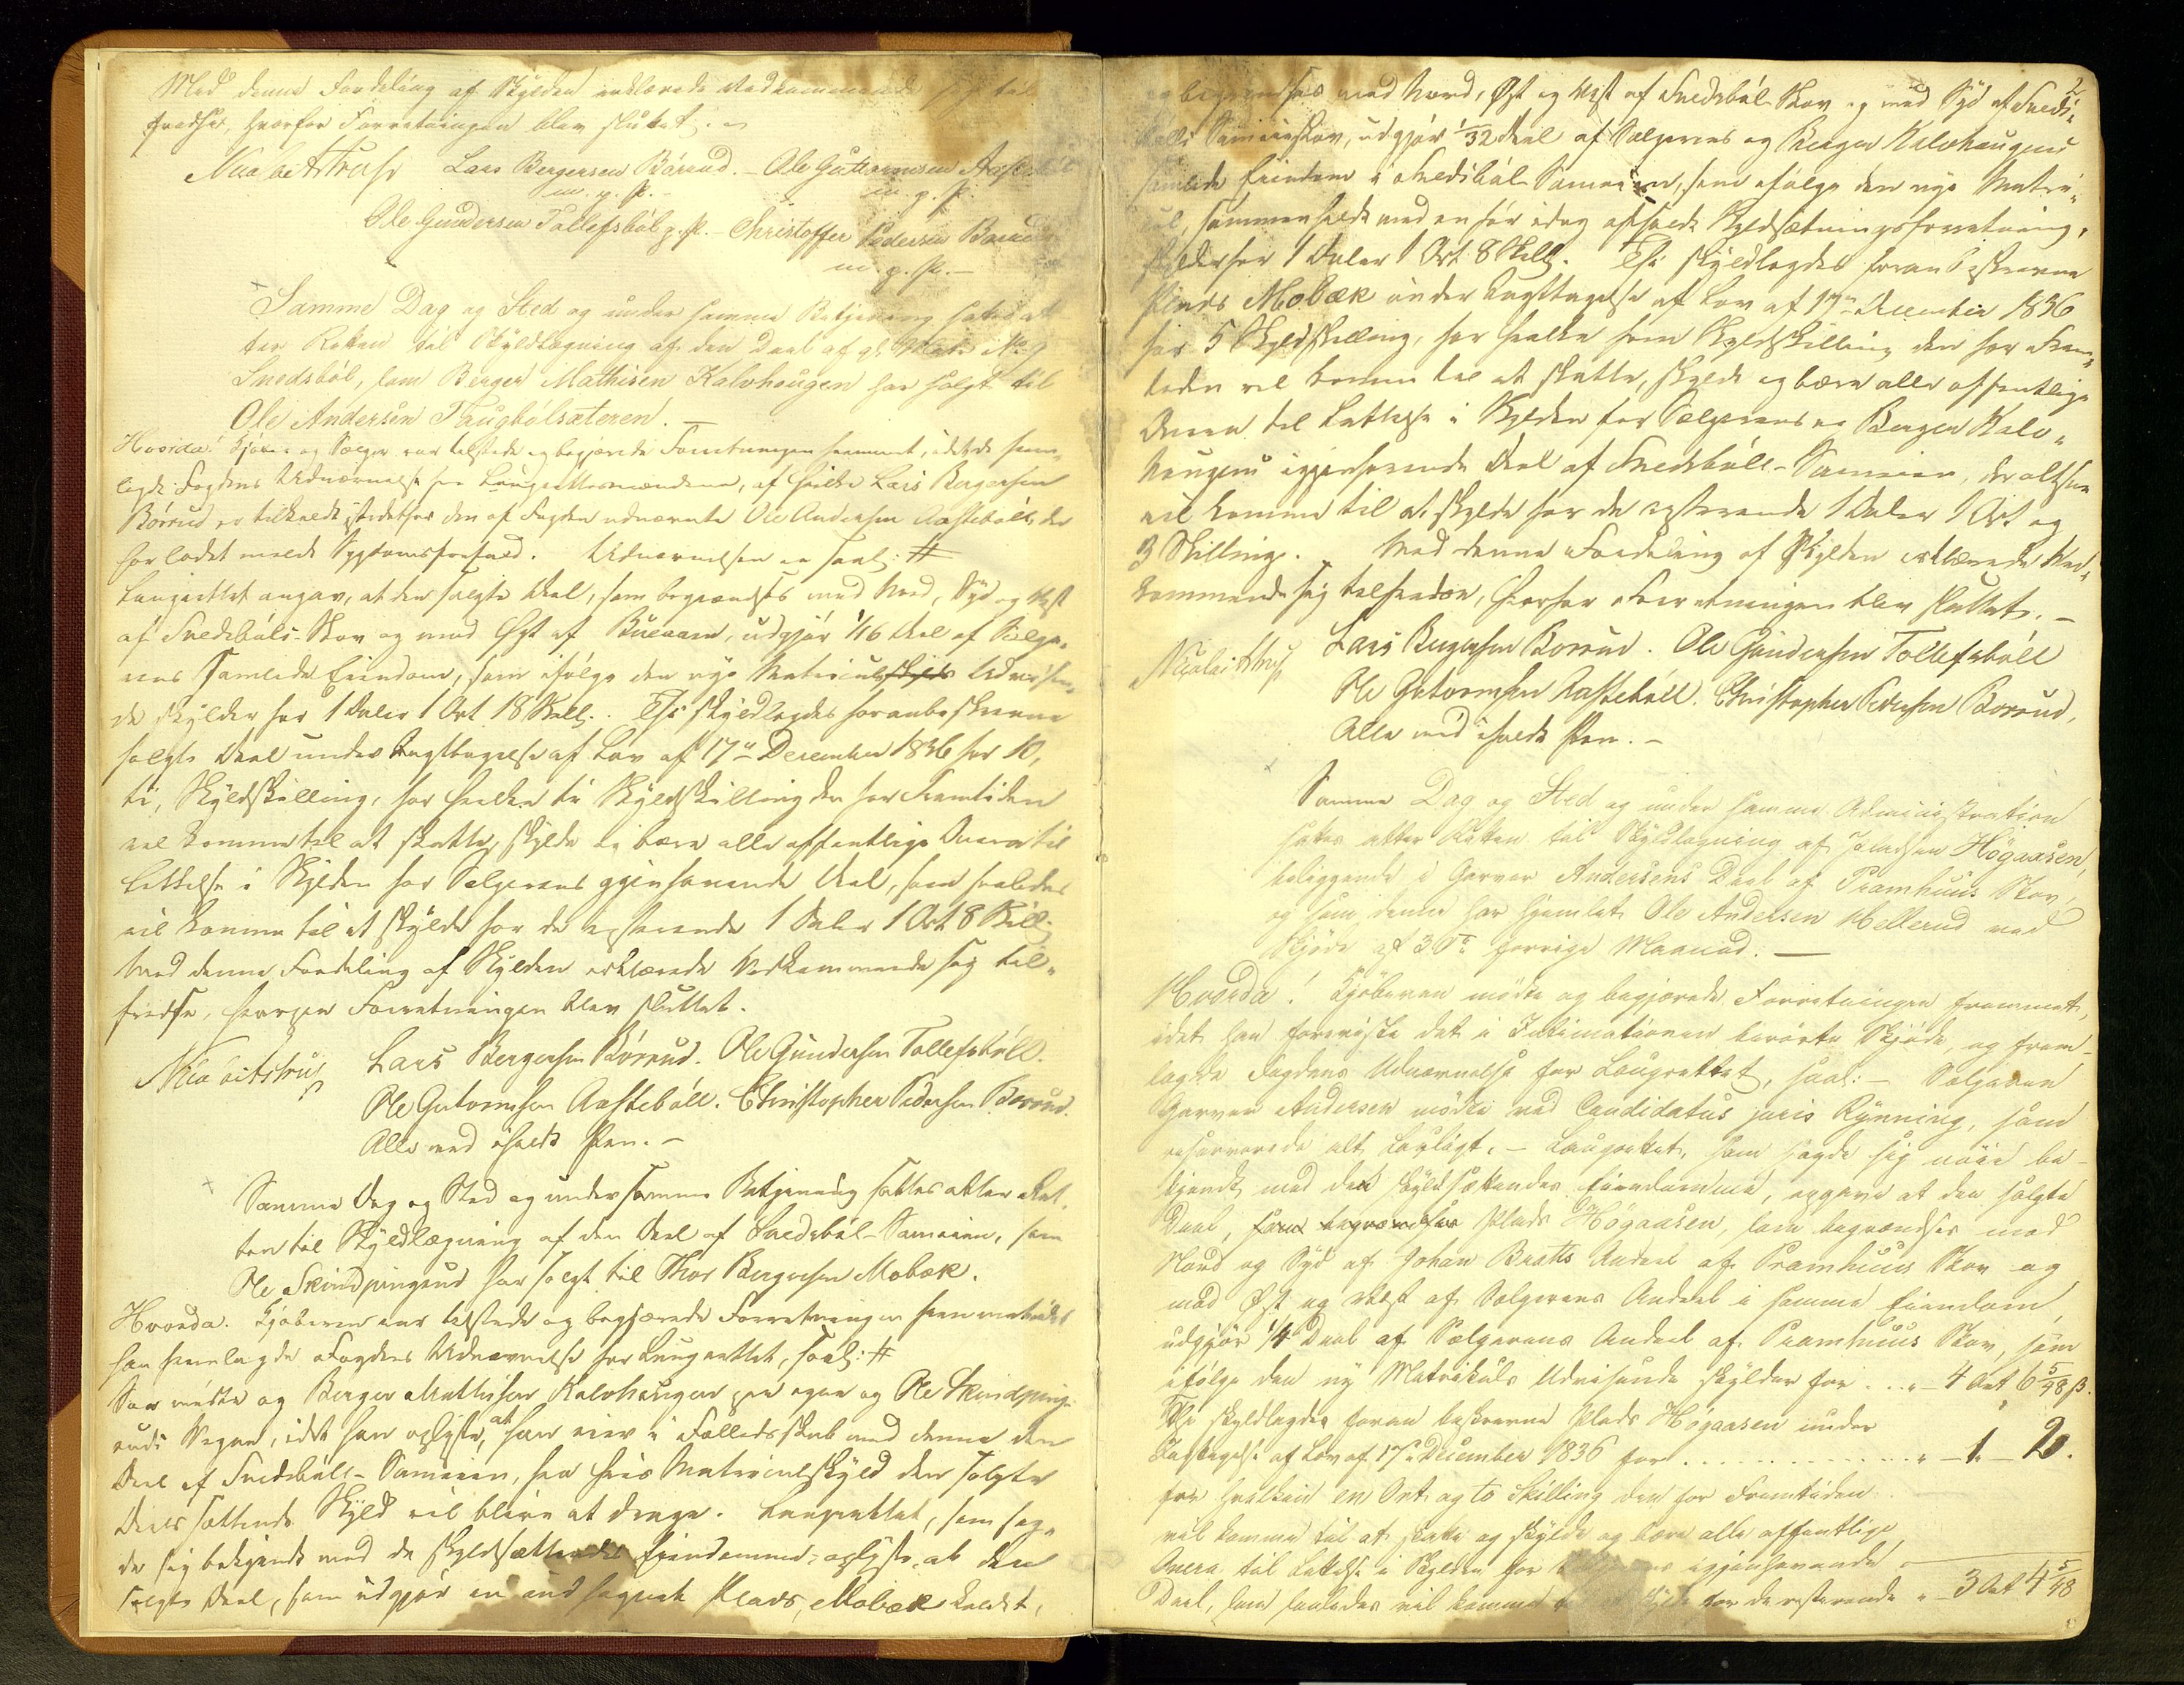 Med denne Fordeling af Skylden erklærede Vedkommende sig til
fredse, hvorfor Forretningen blev sluttet. –
Nicolai Astrup Lars Bergersen Börrud. – Ole Guttormsen
m. p. P. – m. p. P.
Ole Gundersen Tollefsböl p. P. – Christoffer Pedersen
m. p. P. –
Samme Dag og Sted og under samme Betjening sattes at
ter Retten til Skyldlægning af den Deel af gl. Matr. No 9
Smedsböl, som Berger Mathisen Kalvhaugen har solgt til
Ole Andersen Haugbölsæteren. –
Hvorda! Kjöber og Sælger var tilstede og begjærede Forretningen fremmet, idet de frem„
lagde Fogdens Udnævnelse for Laugrettesmændene, af hvilke Lars Bergersen
Börrud er tilkaldt istedetfor den af Fogden udnævnte Ole Andersen Aasteböll, der
har ladet melde Sygdomsforfald. Udnævnelsen er saal: #
Laugrettet angav, at den solgte Deel, som begrændses mod Nord, Syd og Vest
af Smedsböls-Skov og mod Öst af Bueaaen, udgjör 1/16 Deel af Sælge„
rens samlede Eiendom, som ifölge den nye Matricul udvisen„
de skylder for 1 Daler 1 Ort 18 Skill. Thi skyldlagdes foranbeskrevne
solgte Deel under Iagttagelse af Lov af 17de December 1836 for 10,
ti, Skyldskilling, for hvilke ti Skyldskilling den for Fremtiden
vil komme til at skatte, skylde og bære alle offentlige Onera til
Lettelse i Skylden for Sælgerens igjenhavende Deel, som saaledes
vil komme til at skylde for de resterende 1 Daler 1 Ort 8 Skill.
Med denne Fordeling af Skylden erklærede Vedkommende sig til„
fredse, hvorpaa Forretningen blev sluttet.
Nicolai Astrup Lars Bergersen Börrud. Ole Gundersen Tollefsböll.
Ole Gutormsen Aasteböll. Christopher Pedersen Borrud.
Alle med iholdt Pen. –
Samme Dag og Sted og under samme Betjening sattes atter Ret„
ten til Skyldlægning af den Deel af Smedsböl-Sameien, som
Ole Skindpungrud har solgt til Thor Bergersen Mobæk.
Hvorda. Kjöberen var tilstede og begjærede Forretningen fremmet idet
han fremlagde Fogdens Udnævnelse for Laugrettet, saal: #
Saa mödte og Berger Mathisen Kalvhaugen paa egne og Ole Skindpung„
ruds Vegne, idet han oplyste, at han eier i Fælledsskab med denne den
Deel af Smedsböll-Sameien, fra hvis Matriculskyld den solgte
Deels sættende Skyld vil blive at drage. Laugrettet, som sag„
de sig bekjendt med de skyldsættendes Eiendomme, oplyste, at den
solgte Deel, som udgjör en indhegnet Plads, Mobæk kaldet,
2
og begrændses mod Nord, Öst og Vest af Smedsböl-Skov og mod Syd af Smeds„
bölls Sameieskov, udgjör 1/32 Deel af Sælgerens og Berger Kalvhaugens
samlede Eiendom i Smedsböl Sameien, som ifölge den nye Matri„
cul, sammenholdt med en för idag afholdt Skyldsætningsforretning,
skylder for 1 Daler 1 Ort 8 Skill. Thi skyldlagdes foranbeskrevne
Plads Mobæk under Iagttagelse af Lov af 17de December 1836
for 5 Skyldskilling, for hvilke fem Skyldskilling den for Frem„
tiden vil komme til at skatte, skylde og bære alle offentlige
Onera til Lettelse i Skylden for Sælgerens og Berger Kalv„
haugens igjenhavende Deel af Smedsböll-Sameien, der altsaa
vil komme til at skylde for de resterende 1 Daler 1 Ort og
3 Skilling. Med denne Fordeling af Skylden erklærede Ved„
kommende sig tilfredse, hvorfor Forretningen blev sluttet. –
Nicolai Astrup Lars Bergersen Borrud. Ole Gundersen Tollefsböll
Ole Gutormsen Aasteböll. Christopher Pedersen Borrud,
Alle med iholdt Pen. –
Samme Dag og Sted og under samme Administration
sattes atter Retten til Skyldlægning af Pladsen Högaasen,
beliggende i Garver Andersens Deel af Pramhuus Skov,
og som denne har hjemlet Ole Andersen Hellerud ved
Skjöde af 30te forrige Maaned. –
Hvorda! Kjöberen mödte og begjærede Forretningen fremmet,
idet han foreviste det i Intimationen berörte Skjöde, og frem-
lagde Fogdens Udnævnelse for Laugrettet, saal: – Sælgeren
Garver Andersen mödte ved Candidatus juris Rynning, som
reserverede alt Lovligt. – Laugrettet, som sagde sig nöie be-
kjendt med det skyldsættendes Eiendomme, opgave at den solgte
Deel, som begrændses Plads Högaasen, som begrændses mod
Nord og Syd af Johan Braths Andeel af Pramhuus Skov og
mod Öst og Vest af Sælgerens Andeel i samme Eiendom,
udgjör 1/4 Deel af Sælgerens Andeel af Pramhuus Skov, som
ifölge den ny Matrikuls Udvisende skylder for . . . „ – 4 Ort 6 5/48 ß.
Thi skyldlagdes foran beskrevne Plads Högaasen under
Iagttagelse af Lov af 17de December 1836 for . . . . . . . . . . . . „ – 1 – 20.
for hvilken en Ort og to Skilling den for Fremtiden
vil komme til at skatte og skylde og bære alle offentlige
Onera til Lettelse i Skylden for igjenhavende
Deel, som saaledes vil komme skylde for de resterende „ – 3 Ort 4 5/48